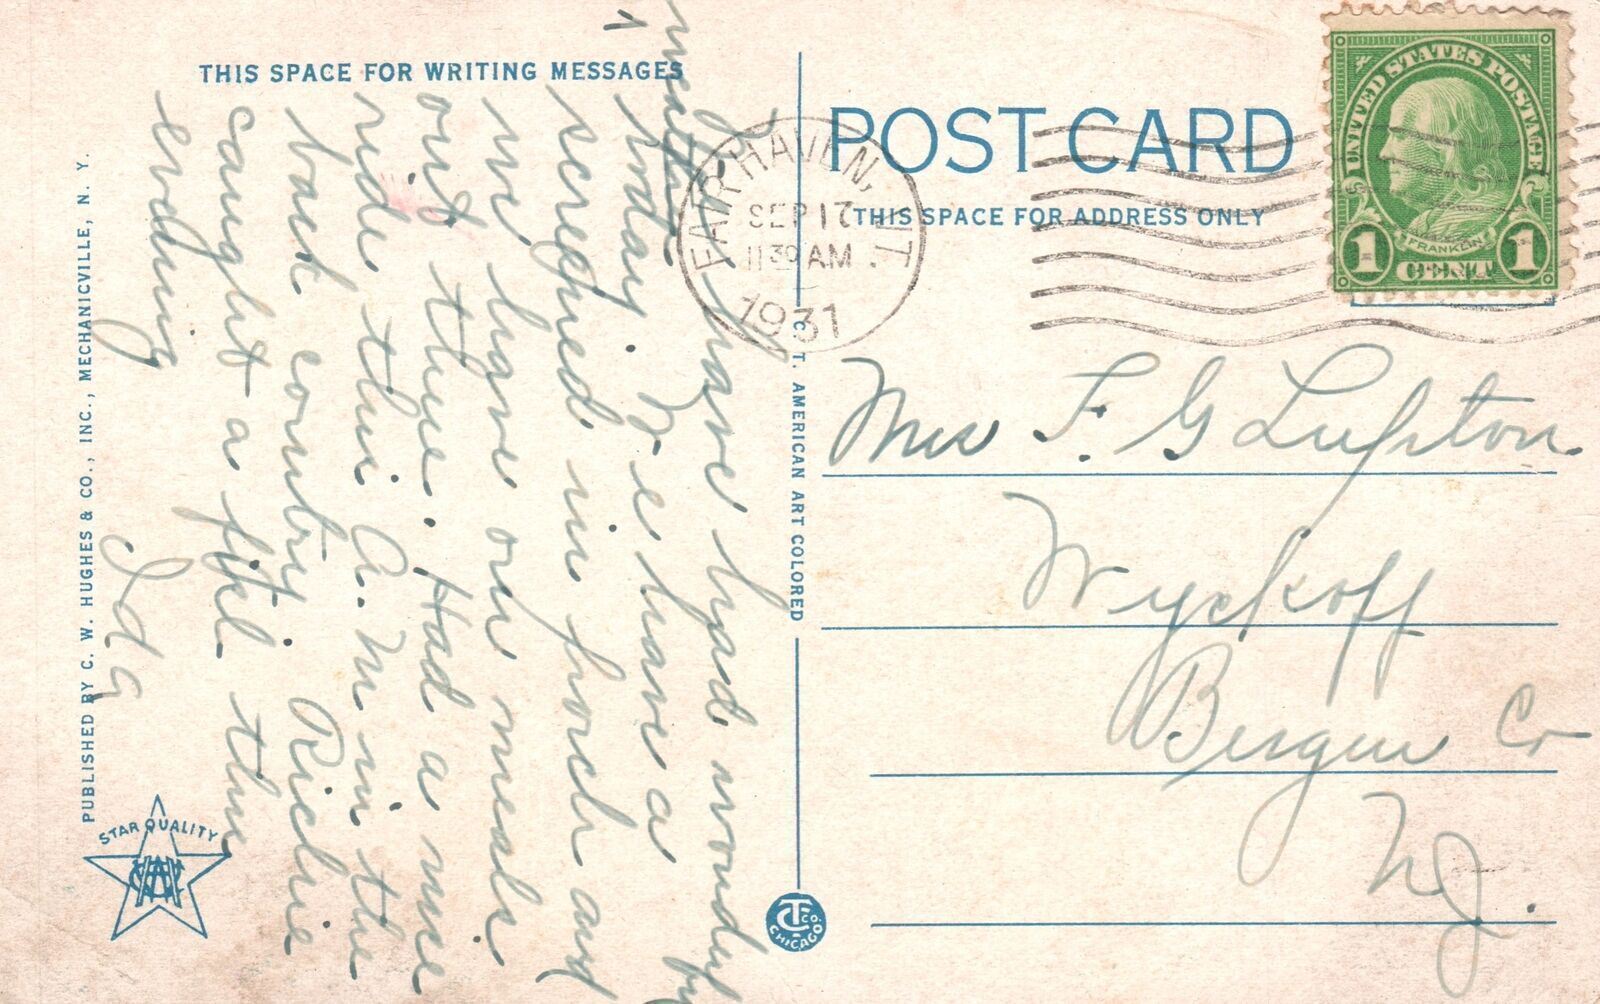 THIS SPACE FOR WRITING MESSAGES
POST CARD
THIS SPACE FOR ADDRESS ONLY
FAIR HAVEN, VT.
SEP 17
11 30 AM
1931
UNITED STATES POSTAGE
FRANKLIN
1 CENT 1
Mrs F. G Lupton
Wyckoff
Bergen Co
N.J.
have had
weather
today. We have a
screened in porch and
we have our meals
out there. Had a nice
ride this A. M. in the
back country. Richie
caught a fish this
evening
Ida
PUBLISHED BY C. W. HUGHES & CO., INC., MECHANICVILLE, N. Y.
STAR QUALITY
C. T. AMERICAN ART COLORED
CT CO. CHICAGO